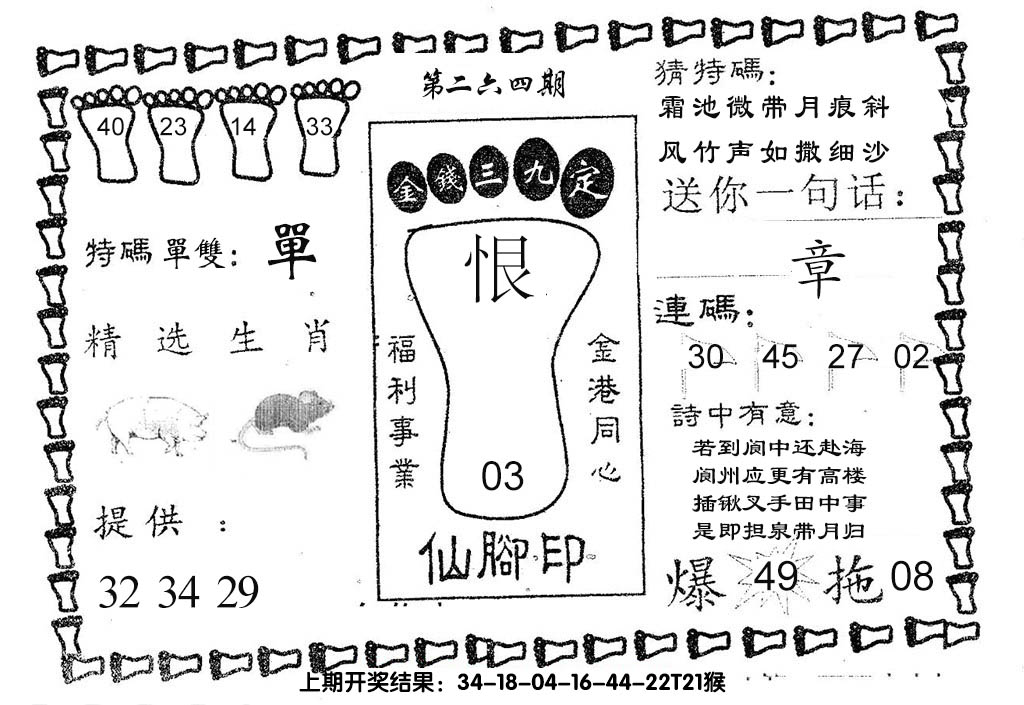 第二六四期
40 23 14 33
特碼單雙：單
精选生肖
提供：
32 34 29
金錢三九定
恨
福利事業
金港同心
03
仙腳印
猜特碼：
霜池微带月痕斜
风竹声如撒细沙
送你一句话：
章
連碼：
30 45 27 02
詩中有意：
若到阆中还赴海
阆州应更有高楼
插锹叉手田中事
是即担泉带月归
爆 49 拖 08
上期开奖结果：34-18-04-16-44-22T21猴